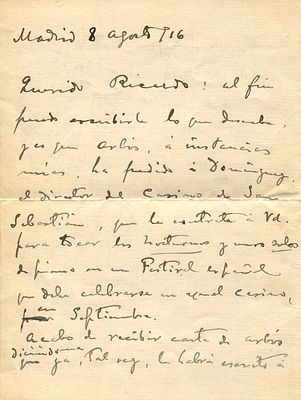 Madrid 8 agosto/16
Querido Ricardo: al fin
puedo escribirle lo que deseaba,
ya que Arbós, á instancias
mías, ha pedido á Domínguez,
el director del Casino de San
Sebastián, que le contrate á Vd.
para tocar los Nocturnos y unos solos
de piano en un Festival español
que debe celebrarse en aquel casino,
en Septiembre.
Acabo de recibir carta de Arbós
diciéndome
que ya, tal vez, le habrá escrito á